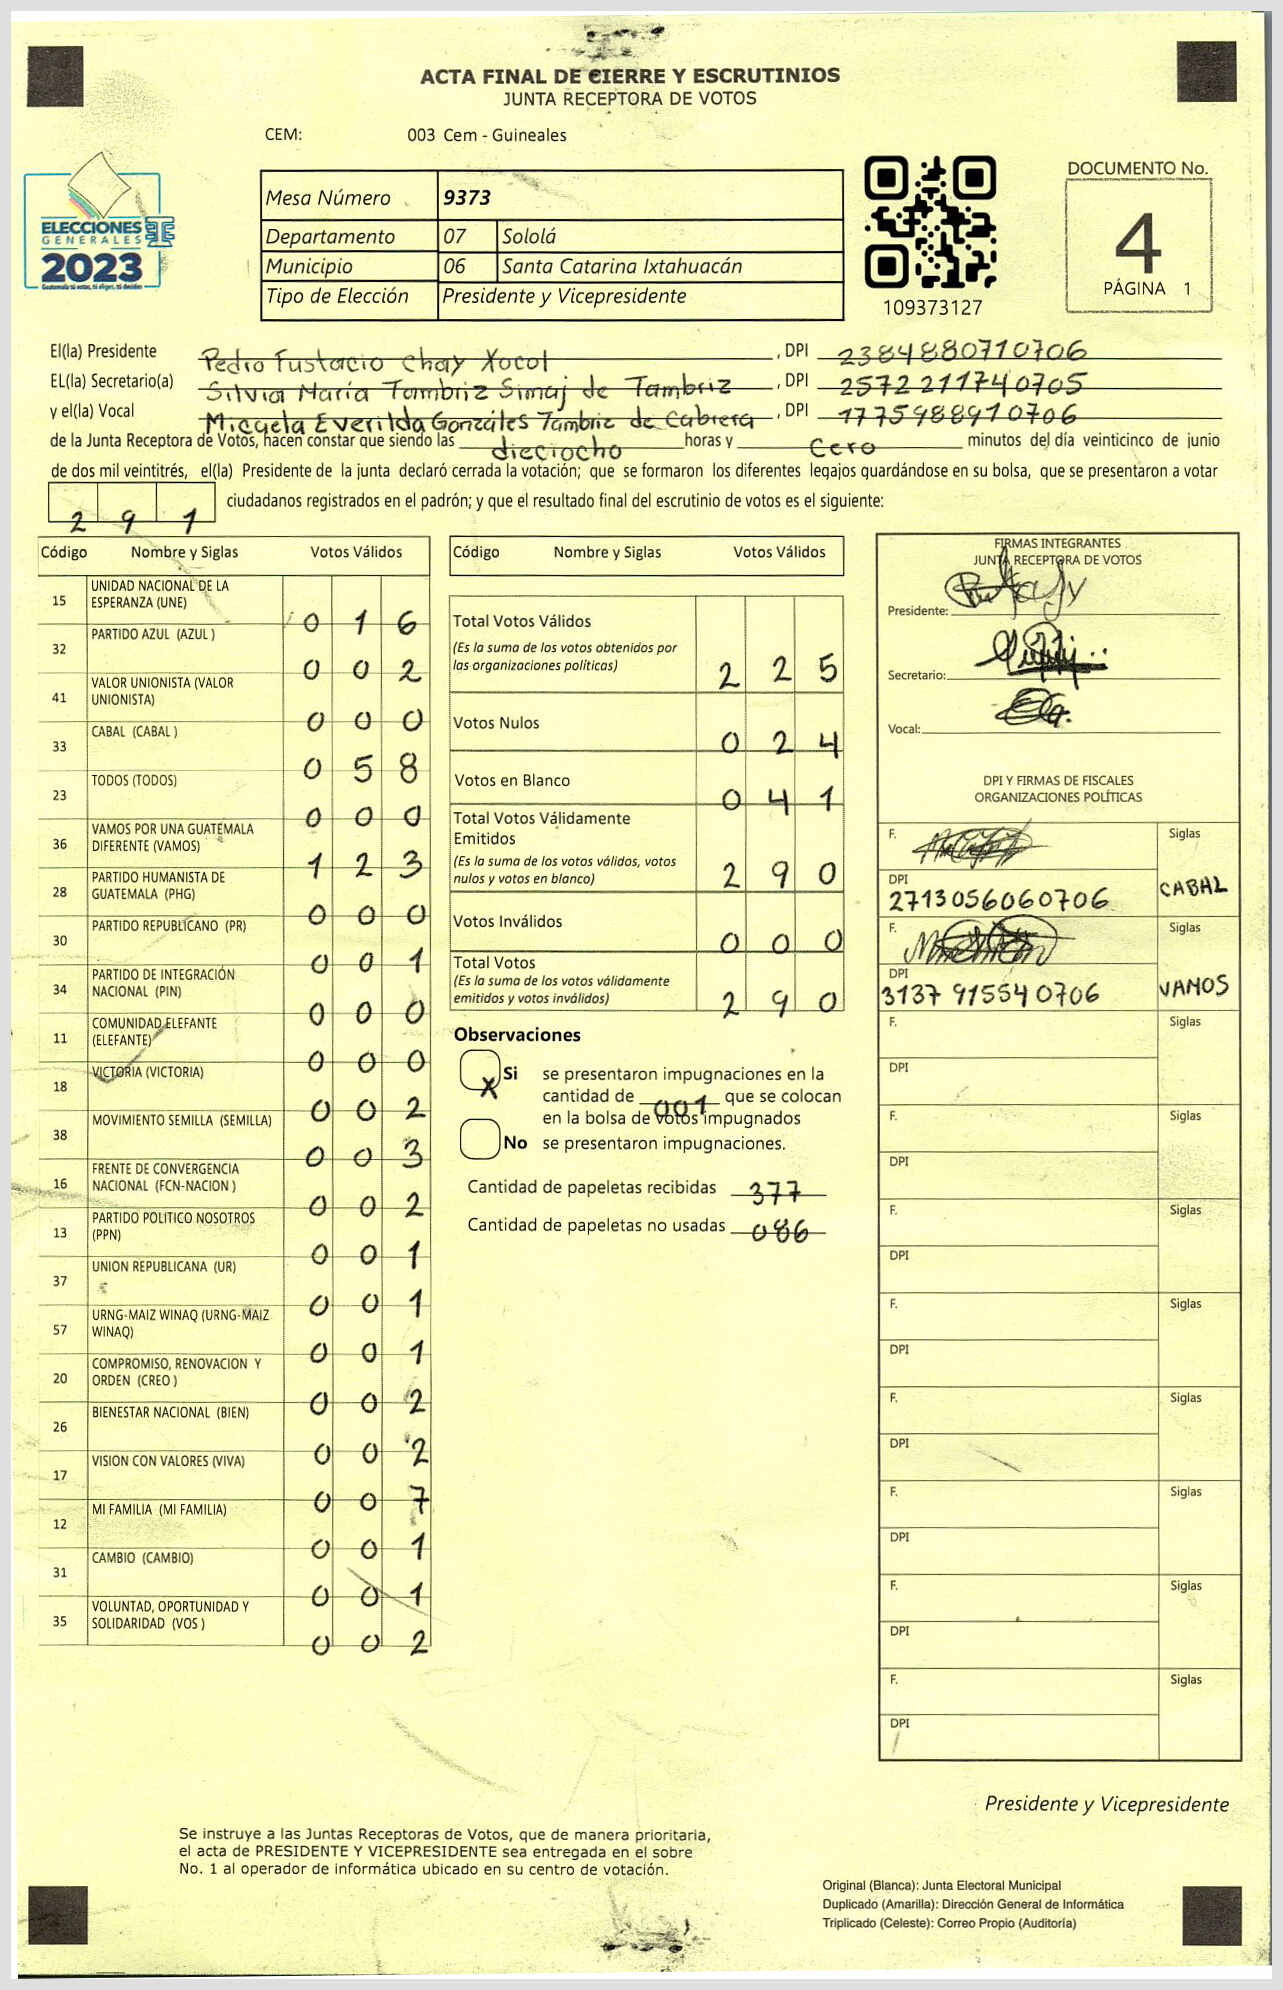 ACTA FINAL DE CIERRE Y ESCRUTINIOS
JUNTA RECEPTORA DE VOTOS
CEM: 003 Cem - Guineales
ELECCIONES
GENERALES
2023
Guatemala tú votas, tú eliges, tú decides
Mesa Número 9373
Departamento 07 Sololá
Municipio 06 Santa Catarina Ixtahuacán
Tipo de Elección Presidente y Vicepresidente
109373127
DOCUMENTO No.
4
PÁGINA 1
El(la) Presidente Pedro Eustacio Chay Xocol , DPI 2384880710706
EL(la) Secretario(a) Silvia María Tambriz Simaj de Tambriz , DPI 2572211740705
y el(la) Vocal Micaela Everilda Gonzáles Tambriz de Cabrera , DPI 1775988910706
de la Junta Receptora de Votos, hacen constar que siendo las dieciocho horas y Cero minutos del día veinticinco de junio
de dos mil veintitrés, el(la) Presidente de la junta declaró cerrada la votación; que se formaron los diferentes legajos quardándose en su bolsa, que se presentaron a votar
2 9 1 ciudadanos registrados en el padrón; y que el resultado final del escrutinio de votos es el siguiente:
Código Nombre y Siglas Votos Válidos
15 UNIDAD NACIONAL DE LA
ESPERANZA (UNE) 0 1 6
32 PARTIDO AZUL (AZUL ) 0 0 2
41 VALOR UNIONISTA (VALOR
UNIONISTA) 0 0 0
33 CABAL (CABAL ) 0 5 8
23 TODOS (TODOS) 0 0 0
36 VAMOS POR UNA GUATEMALA
DIFERENTE (VAMOS) 1 2 3
28 PARTIDO HUMANISTA DE
GUATEMALA (PHG) 0 0 0
30 PARTIDO REPUBLICANO (PR) 0 0 1
34 PARTIDO DE INTEGRACIÓN
NACIONAL (PIN) 0 0 0
11 COMUNIDAD ELEFANTE
(ELEFANTE) 0 0 0
18 VICTORIA (VICTORIA) 0 0 2
38 MOVIMIENTO SEMILLA (SEMILLA) 0 0 3
16 FRENTE DE CONVERGENCIA
NACIONAL (FCN-NACION ) 0 0 2
13 PARTIDO POLITICO NOSOTROS
(PPN) 0 0 1
37 UNION REPUBLICANA (UR) 0 0 1
57 URNG-MAIZ WINAQ (URNG-MAIZ
WINAQ) 0 0 1
20 COMPROMISO, RENOVACION Y
ORDEN (CREO ) 0 0 2
26 BIENESTAR NACIONAL (BIEN) 0 0 2
17 VISION CON VALORES (VIVA) 0 0 7
12 MI FAMILIA (MI FAMILIA) 0 0 1
31 CAMBIO (CAMBIO) 0 0 1
35 VOLUNTAD, OPORTUNIDAD Y
SOLIDARIDAD (VOS ) 0 0 2
Código Nombre y Siglas Votos Válidos
Total Votos Válidos
(Es la suma de los votos obtenidos por
las organizaciones políticas) 2 2 5
Votos Nulos 0 2 4
Votos en Blanco 0 4 1
Total Votos Válidamente
Emitidos
(Es la suma de los votos válidos, votos
nulos y votos en blanco) 2 9 0
Votos Inválidos 0 0 0
Total Votos
(Es la suma de los votos válidamente
emitidos y votos inválidos) 2 9 0
Observaciones
X Si se presentaron impugnaciones en la
cantidad de 001 que se colocan
en la bolsa de votos impugnados
No se presentaron impugnaciones.
Cantidad de papeletas recibidas 377
Cantidad de papeletas no usadas 086
FIRMAS INTEGRANTES
JUNTA RECEPTORA DE VOTOS
Presidente:
Secretario:
Vocal:
DPI Y FIRMAS DE FISCALES
ORGANIZACIONES POLÍTICAS
F. Siglas
DPI
2713056060706 CABAL
F. Siglas
DPI
3137 915540706 VAMOS
F. Siglas
DPI
F. Siglas
DPI
F. Siglas
DPI
F. Siglas
DPI
F. Siglas
DPI
F. Siglas
DPI
F. Siglas
DPI
F. Siglas
DPI
Presidente y Vicepresidente
Se instruye a las Juntas Receptoras de Votos, que de manera prioritaria,
el acta de PRESIDENTE Y VICEPRESIDENTE sea entregada en el sobre
No. 1 al operador de informática ubicado en su centro de votación.
Original (Blanca): Junta Electoral Municipal
Duplicado (Amarilla): Dirección General de Informática
Triplicado (Celeste): Correo Propio (Auditoría)